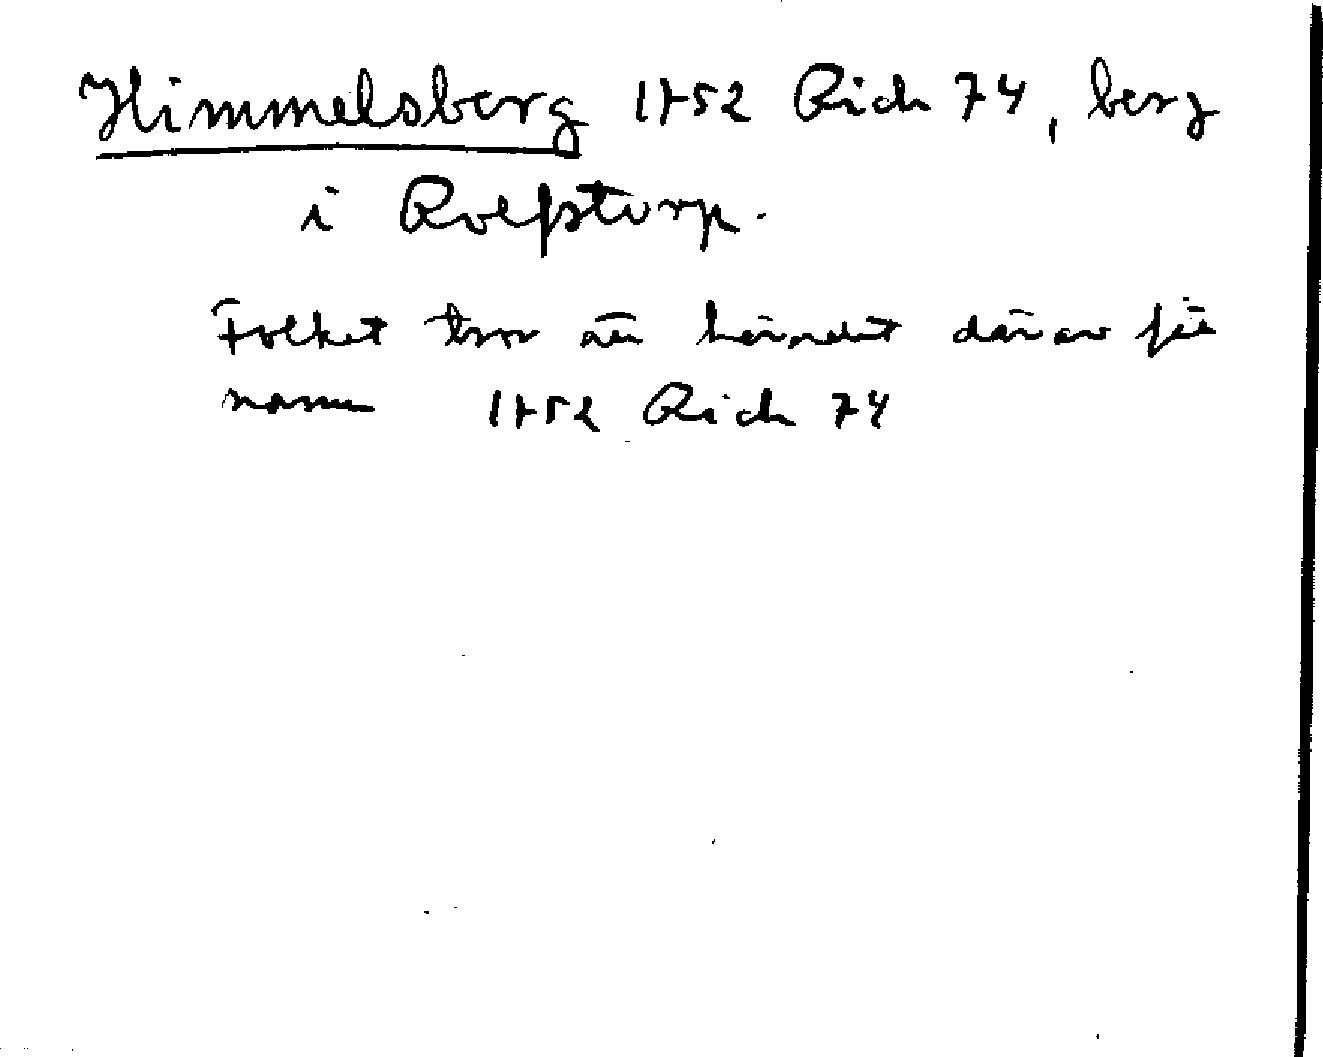 Himmelsberg 1752 Rich 74, berg
i Rolfstorp.
Folket tror att häradet därav fått
namn 1752 Rich 74